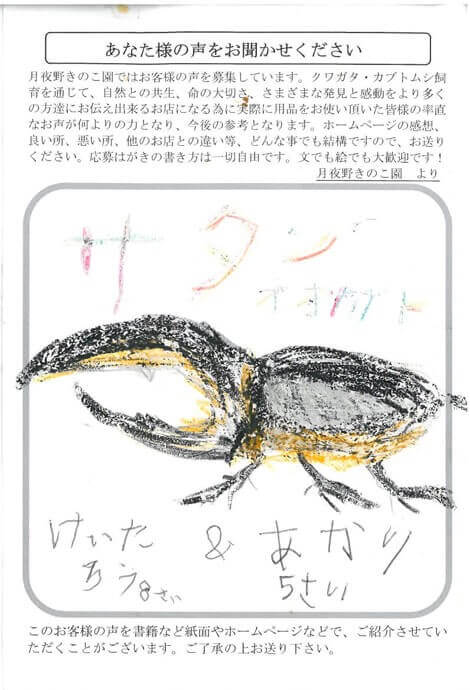 あなた様の声をお聞かせください
月夜野きのこ園ではお客様の声を募集しています。クワガタ・カブトムシ飼
育を通じて、自然との共生、命の大切さ、さまざまな発見と感動をより多く
の方達にお伝え出来るお店になる為に実際に用品をお使い頂いた皆様の率直
なお声が何よりの力となり、今後の参考となります。ホームページの感想、
良い所、悪い所、他のお店との違い等、どんな事でも結構ですので、お送り
ください。応募はがきの書き方は一切自由です。文でも絵でも大歓迎です！
月夜野きのこ園　より
サタン
オオカブト
けいた & あかり
8さい 5さい
このお客様の声を書籍など紙面やホームページなどで、ご紹介させてい
ただくことがございます。ご了承の上お送り下さい。